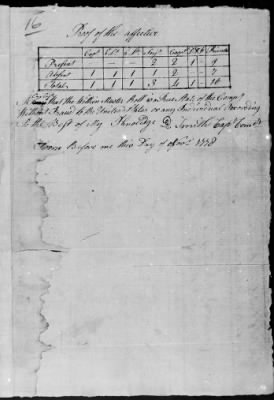 16
Proof of the Effective
Capt Serjt Corpl Private
Present — — 2 2 9
Absent 1 1 1 1 2
Total 1 1 1 3 4 1
that the Within Muster Roll is a True State of the Compy
Without Fraud to the United States or any Individual According
To the Best of My Knowledge Smith Capt
Sworn Before me this Day of Novr 1778